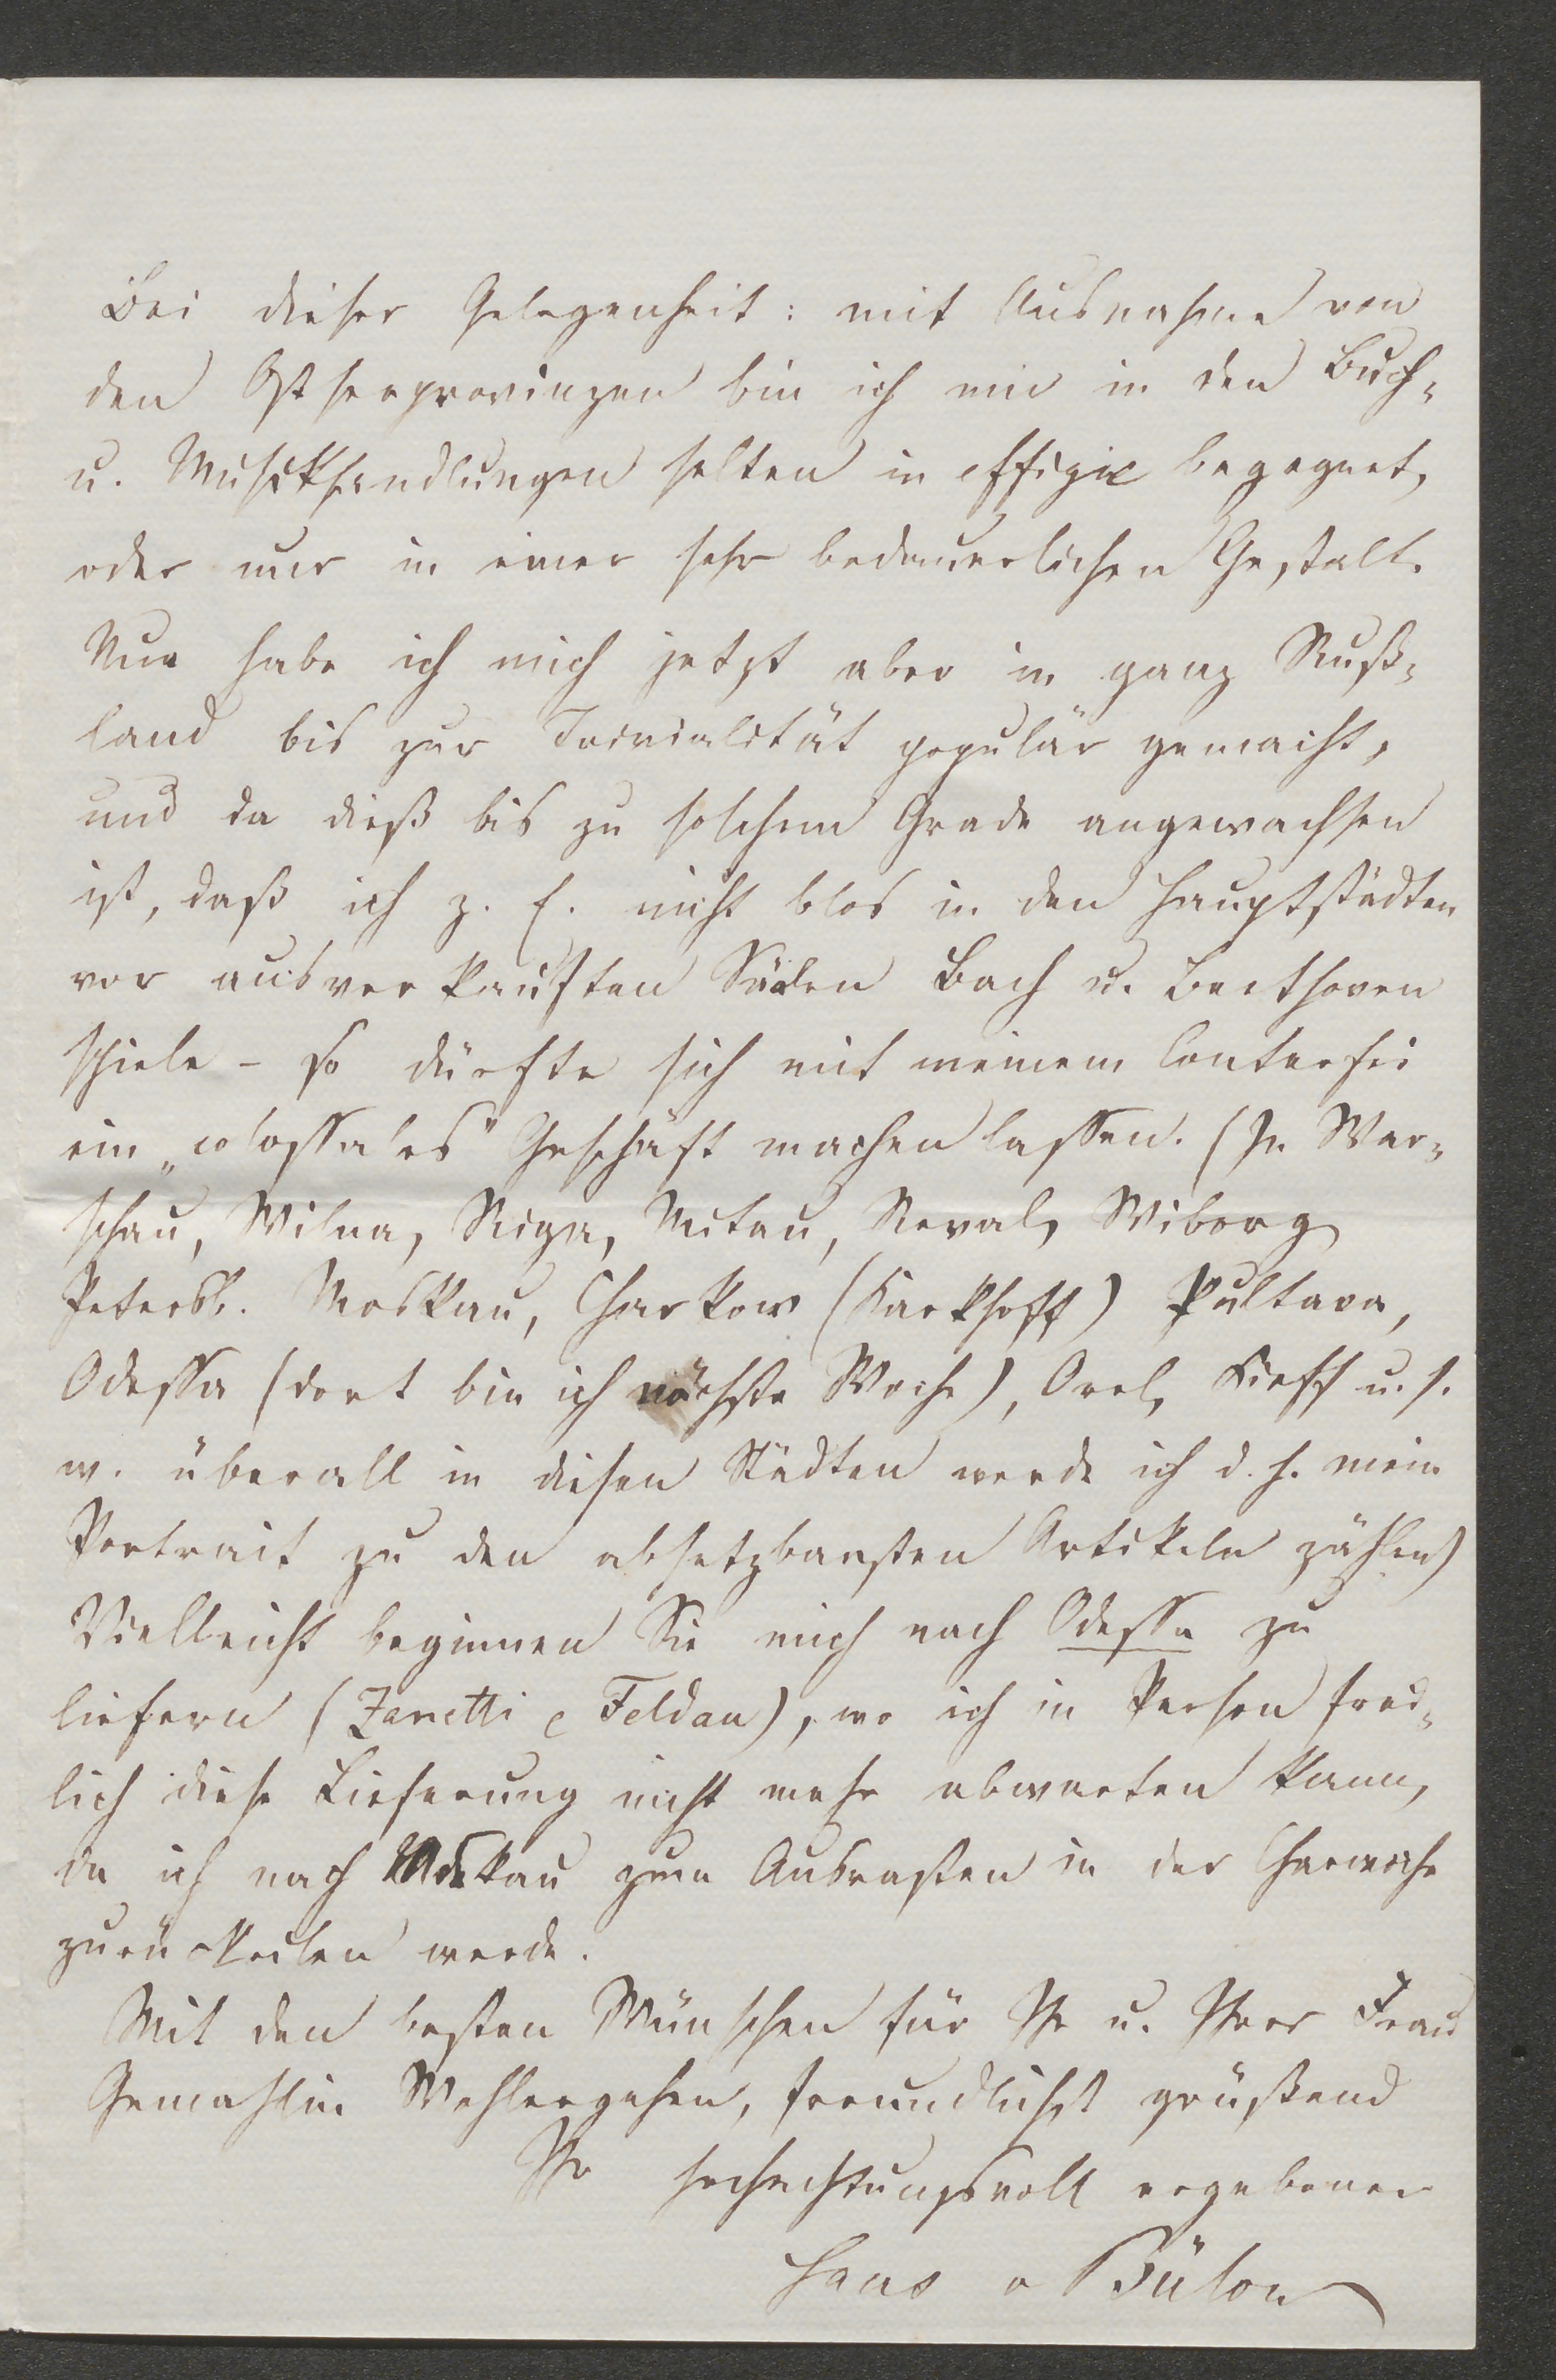 Bei dieser Gelegenheit: mit Ausnahme von
den Ostseeprovinzen bin ich mir in den Buch-
u. Musikhandlungen selten in effigie begegnet,
oder nur in einer sehr bedauerlichen Gestalt.
Nun habe ich mich jetzt aber in ganz Ruß-
land bis zur Trivialität populär gemacht,
und da dieß bis zu solchem Grade angewachsen
ist, daß ich z. E. nicht blos in den Hauptstädten
vor ausverkauften Sälen Bach u. Beethoven
spiele – so dürfte sich mit meinem Conterfei
ein „colossales" Geschäft machen lassen. (In War-
schau, Wilna, Riga, Mitau, Reval, Wiborg
Petersb. Moskau, Charkow (Karkhoff) Pultava,
Odessa (dort bin ich nächste Woche), Orel, Kieff u. s.
w. überall in diesen Städten werde ich d. h. mein
Portrait zu den absetzbarsten Artikeln zählen)
Vielleicht beginnen Sie mich nach Odessa zu
liefern (Zanetti e Feldau), wo ich in Person freid-
lich diese Lieferung nicht mehr abwarten kann,
da ich nach Moskau zum Ausrasten in der Charwoche
zurückeilen werde.
Mit den besten Wünschen für Ihr u. Ihrer Frau
Gemahlin Wohlergehen, freundlichst grüßend
Ihr hochachtungsvoll ergebener
Hans v Bülow